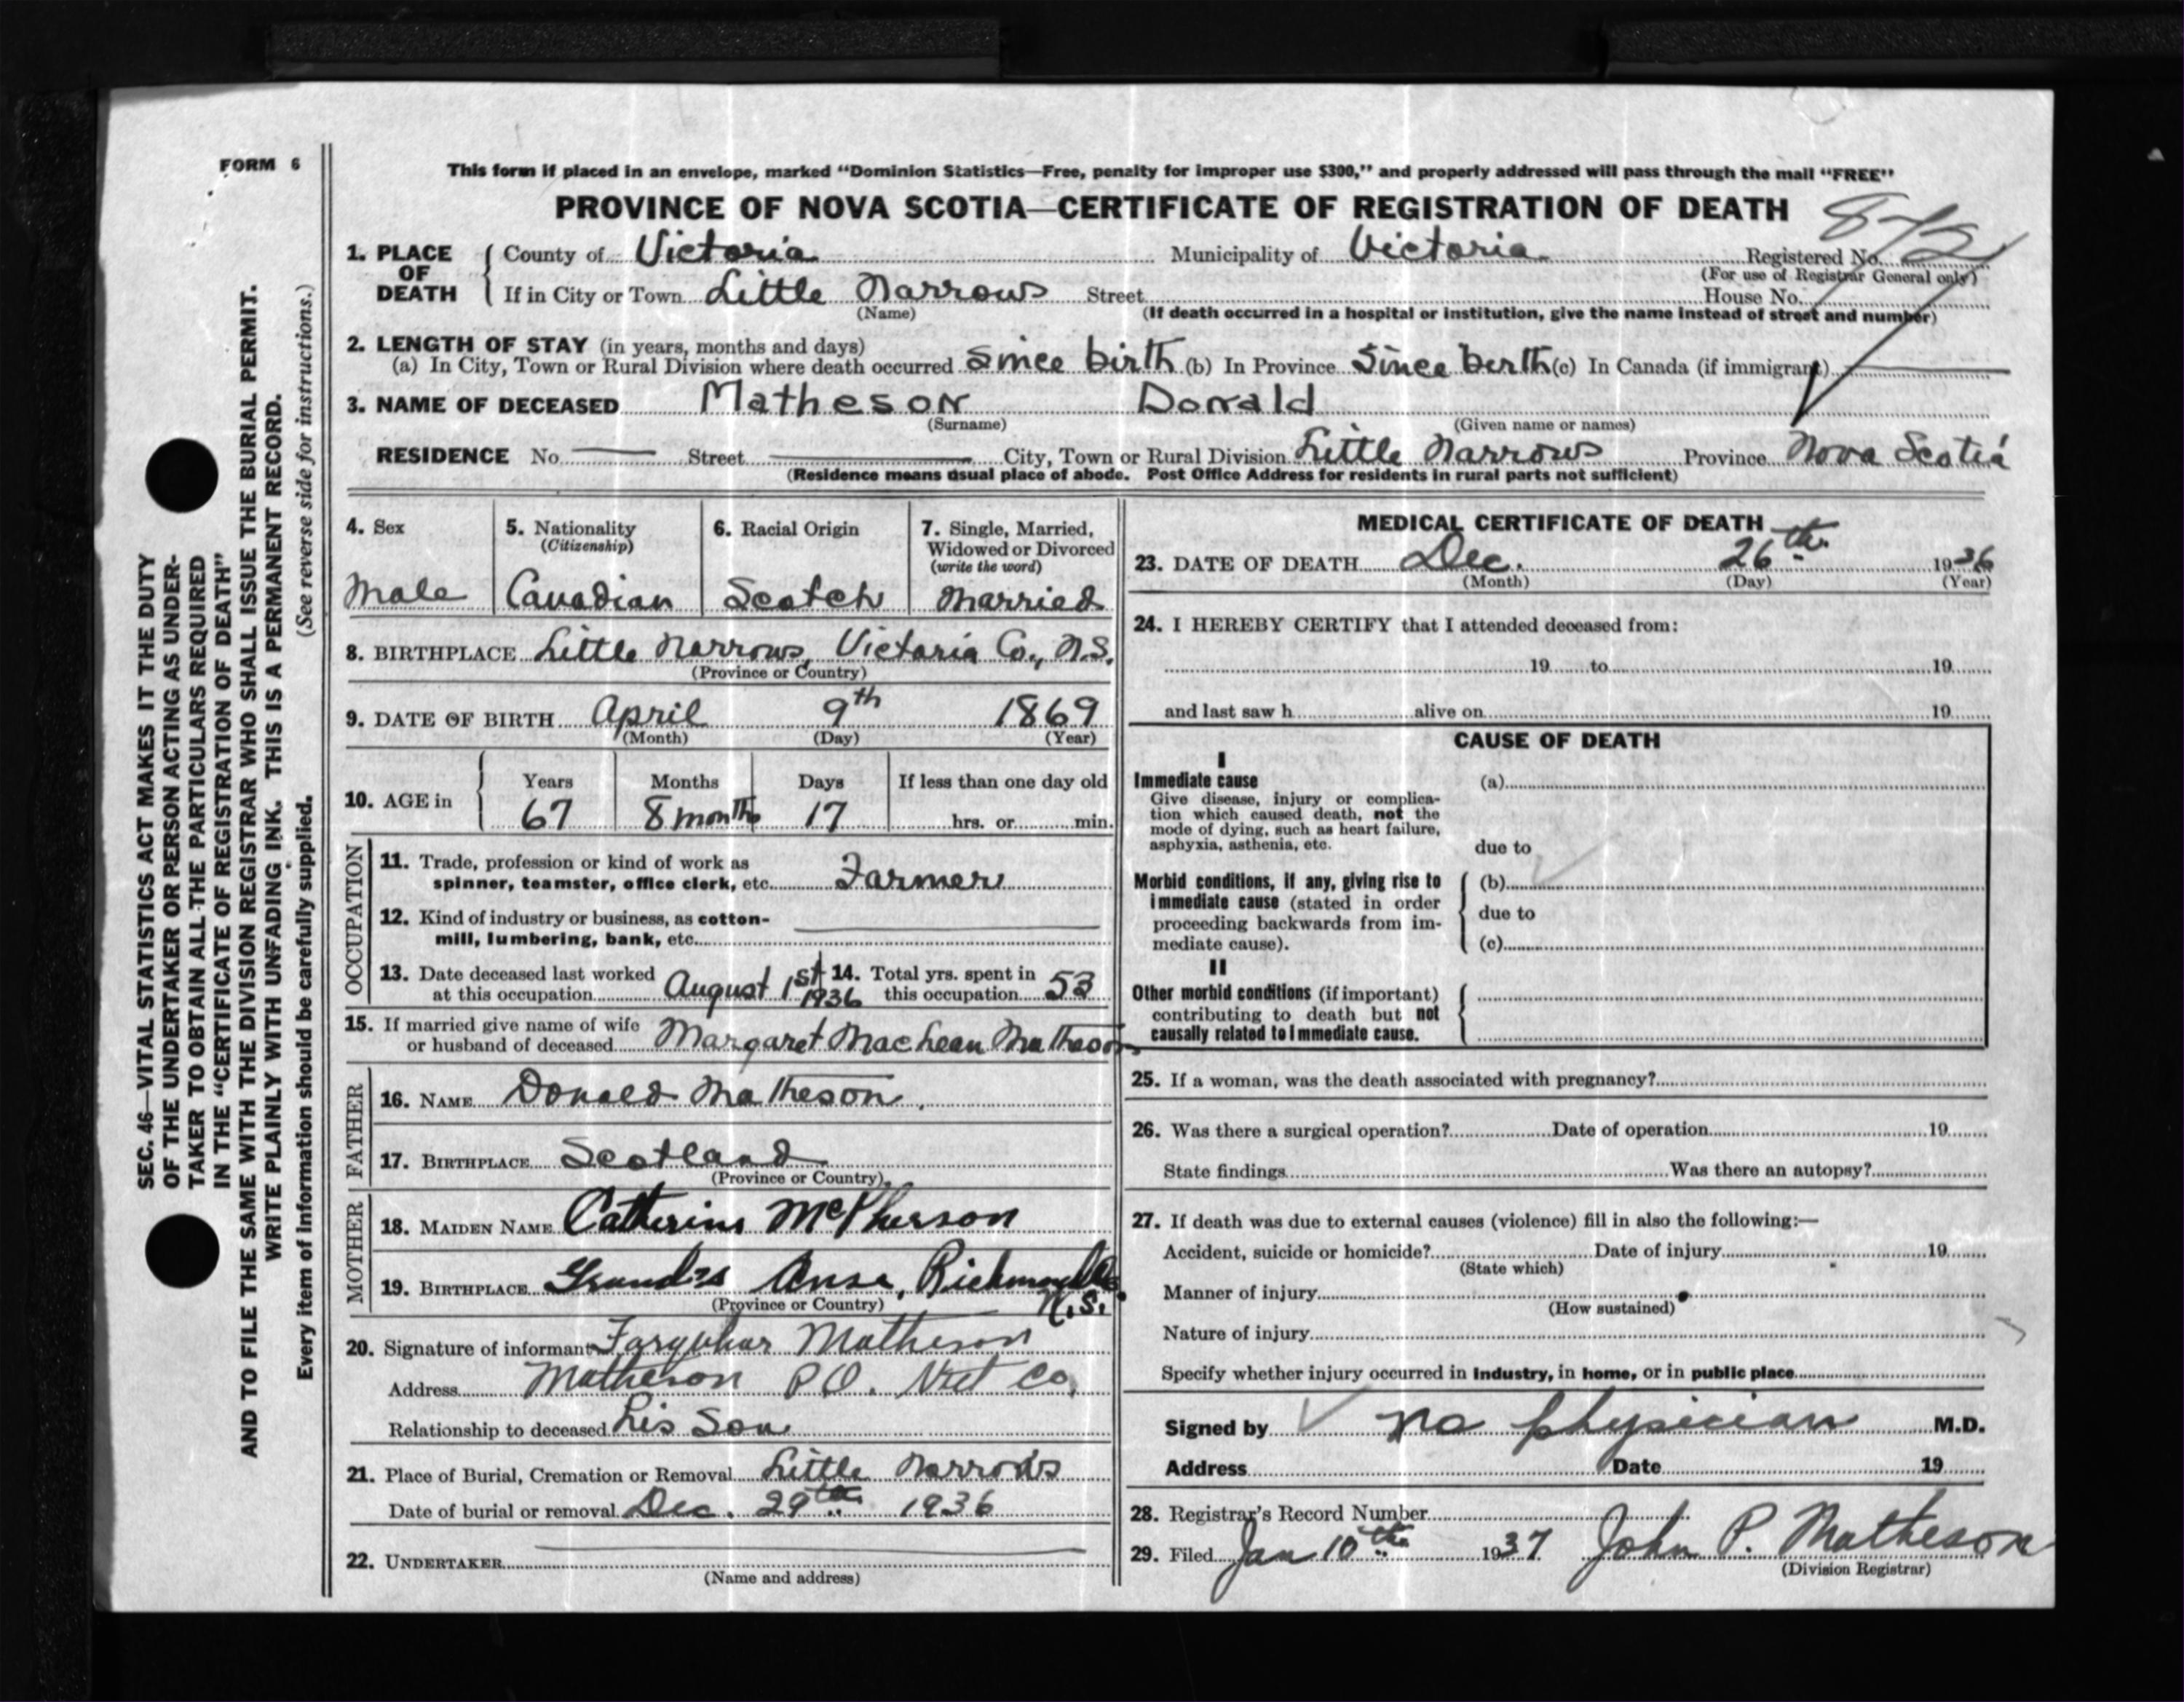 FORM 6
This form if placed in an envelope, marked "Dominion Statistics—Free, penalty for improper use $300," and properly addressed will pass through the mail "FREE"
PROVINCE OF NOVA SCOTIA—CERTIFICATE OF REGISTRATION OF DEATH
1. PLACE OF DEATH County of Victoria Municipality of Victoria Registered No.
(For use of Registrar General only)
If in City or Town Little Narrows Street House No.
(Name) (If death occurred in a hospital or institution, give the name instead of street and number)
2. LENGTH OF STAY (in years, months and days)
(a) In City, Town or Rural Division where death occurred Since birth (b) In Province Since berth (c) In Canada (if immigrant)
3. NAME OF DECEASED Matheson Donald
(Surname) (Given name or names)
RESIDENCE No. Street City, Town or Rural Division Little Narrows Province Nova Scotia
(Residence means usual place of abode. Post Office Address for residents in rural parts not sufficient)
4. Sex
Male
5. Nationality
(Citizenship)
Canadian
6. Racial Origin
Scotch
7. Single, Married,
Widowed or Divorced
(write the word)
Married
8. BIRTHPLACE Little Narrows, Victoria Co., N.S.
(Province or Country)
9. DATE OF BIRTH April 9th 1869
(Month) (Day) (Year)
10. AGE in
Years Months Days If less than one day old
67 8 months 17 hrs. or min.
OCCUPATION
11. Trade, profession or kind of work as
spinner, teamster, office clerk, etc. Farmer
12. Kind of industry or business, as cotton-
mill, lumbering, bank, etc.
13. Date deceased last worked
at this occupation August 1st 1936
14. Total yrs. spent in
this occupation 53
15. If married give name of wife
or husband of deceased Margaret MacLean Matheson
FATHER
16. NAME Donald Matheson
17. BIRTHPLACE Scotland
(Province or Country)
MOTHER
18. MAIDEN NAME Catherine McPherson
19. BIRTHPLACE Anse, Richmond Co. N.S.
(Province or Country)
20. Signature of informant Farquhar Matheson
Address Matheson P.O. Vict Co.
Relationship to deceased his Son
21. Place of Burial, Cremation or Removal Little Narrows
Date of burial or removal Dec. 29th 1936
22. UNDERTAKER
(Name and address)
MEDICAL CERTIFICATE OF DEATH
23. DATE OF DEATH Dec. 26th 1936
(Month) (Day) (Year)
24. I HEREBY CERTIFY that I attended deceased from:
19 to 19
and last saw h alive on 19
CAUSE OF DEATH
I
Immediate cause (a)
Give disease, injury or complica-
tion which caused death, not the
mode of dying, such as heart failure,
asphyxia, asthenia, etc.
due to
Morbid conditions, if any, giving rise to (b)
immediate cause (stated in order
proceeding backwards from im- due to
mediate cause). (c)
II
Other morbid conditions (if important)
contributing to death but not
causally related to immediate cause.
25. If a woman, was the death associated with pregnancy?
26. Was there a surgical operation? Date of operation 19
State findings Was there an autopsy?
27. If death was due to external causes (violence) fill in also the following:—
Accident, suicide or homicide? Date of injury 19
(State which)
Manner of injury
(How sustained)
Nature of injury
Specify whether injury occurred in industry, in home, or in public place
Signed by no physician M.D.
Address Date 19
28. Registrar's Record Number
29. Filed Jan 10th 1937 John P. Matheson
(Division Registrar)
SEC. 46—VITAL STATISTICS ACT MAKES IT THE DUTY
OF THE UNDERTAKER OR PERSON ACTING AS UNDER-
TAKER TO OBTAIN ALL THE PARTICULARS REQUIRED
IN THE "CERTIFICATE OF REGISTRATION OF DEATH"
AND TO FILE THE SAME WITH THE DIVISION REGISTRAR WHO SHALL ISSUE THE BURIAL PERMIT.
WRITE PLAINLY WITH UNFADING INK. THIS IS A PERMANENT RECORD.
Every item of information should be carefully supplied. (See reverse side for instructions.)